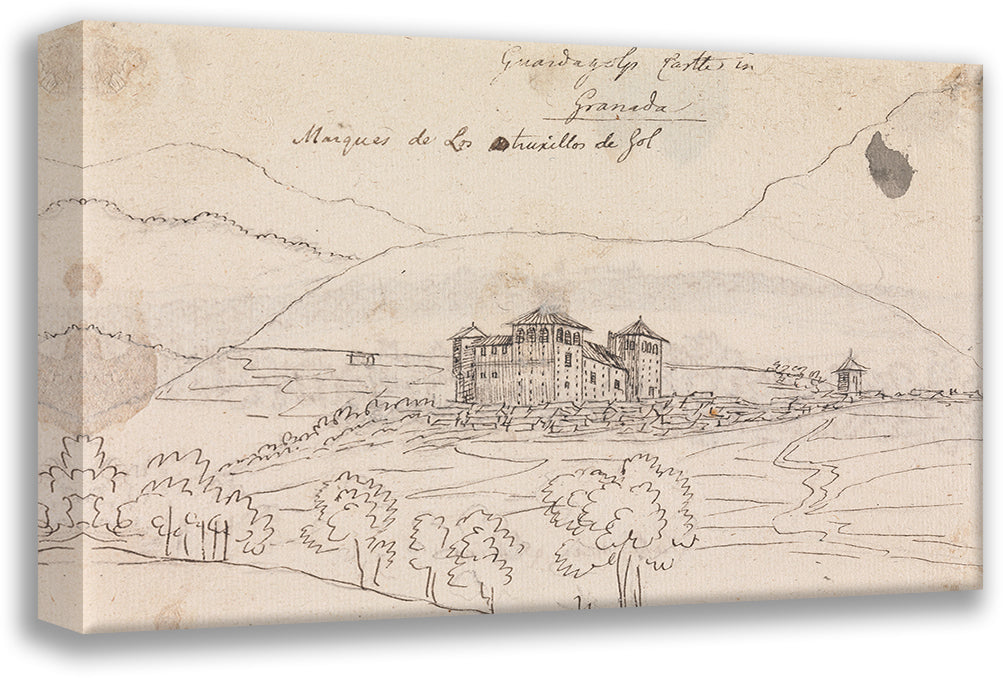 Guardagolp Castle in
Granada
Marques de Los truxillos de Gol